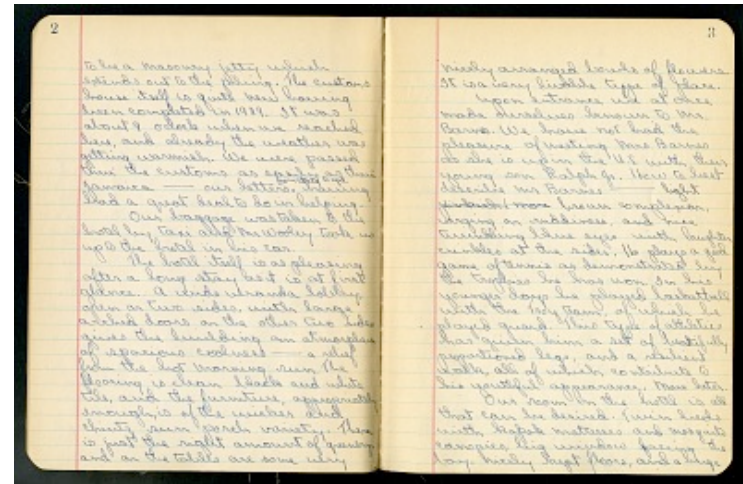 2
to be a masonry jetty which
extends out to the piling. The customs
house itself is quite new having
been completed in 1939. It was
about 9 o'clock when we reached
here, and already the weather was
getting warmish. We were passed
thru the customs as easily as in
Jamaica — our letters,
had a great deal to do in helping.
Our baggage was taken to the
hotel by taxi and Mr. took us
up to the hotel in his car.
The hotel itself is as pleasing
after a long stay as it is at first
glance. A wide veranda lobby
open on two sides, with large
arched doors on the other two sides
gives the building an atmosphere
of spacious coolness — a relief
from the hot morning sun. The
flooring is clean black and white
tile, and the furniture, appropriately
enough, is of the wicker and
sun porch variety. There
is just the right amount of greenery
and on the tables are some very
3
nicely arranged bowls of flowers.
It is a very livable type of place.
Upon entrance we at once
made ourselves known to Mr.
Barnes. We have not had the
pleasure of meeting Mrs Barnes
as she is up in the U.S. with their
young son Ralph Jr. How to best
describe Mr Barnes — light
more brown complexion,
verging on ruddiness, and nice
twinkling blue eyes with laughter
crinkles at the sides. He plays a good
game of tennis as demonstrated by
the trophies he has won. In his
younger days he played basketball
with the team, of which he
played guard. This type of athletics
has given him a set of beautifully
proportioned legs, and a resilient
walk, all of which contribute to
his youthful appearance. More later.
Our room in the hotel is all
that can be desired. Twin beds
with Kapok mattresses and mosquito
canopies, big window facing the
bay. Nicely kept floors, and a huge